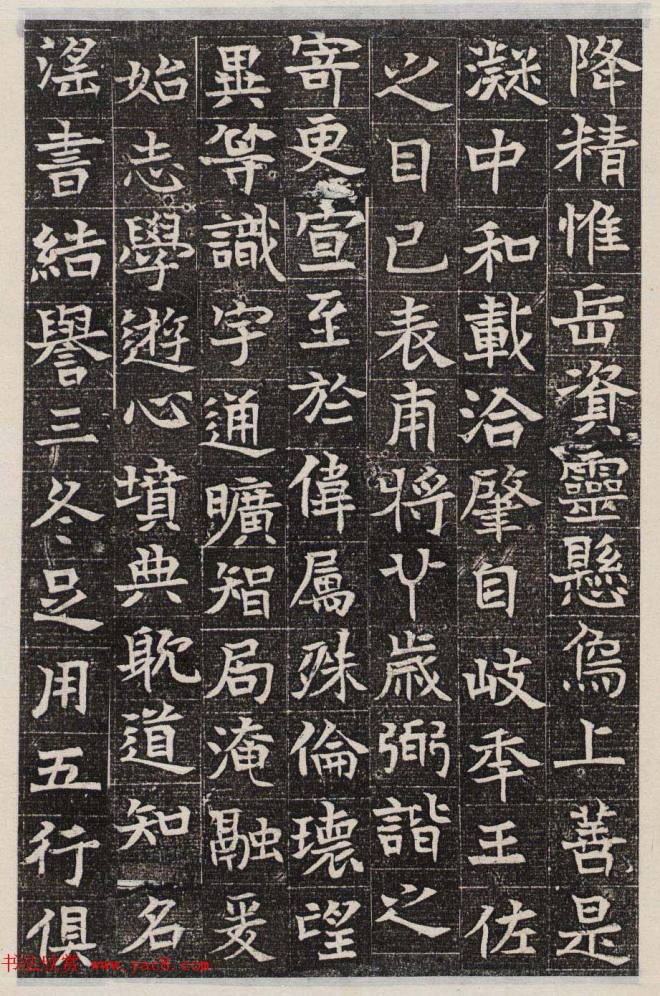 降精惟岳資靈懸上善是
凝中和載洽肇自岐年王佐
之目已表甫將丱歲弼諧之
寄更宣至於偉屬殊倫瓌望
異等識宇通曠智局淹融爰
始志學遊心墳典耽道知名
淫書結譽三冬足用五行俱
书法欣赏 www.yac8.com